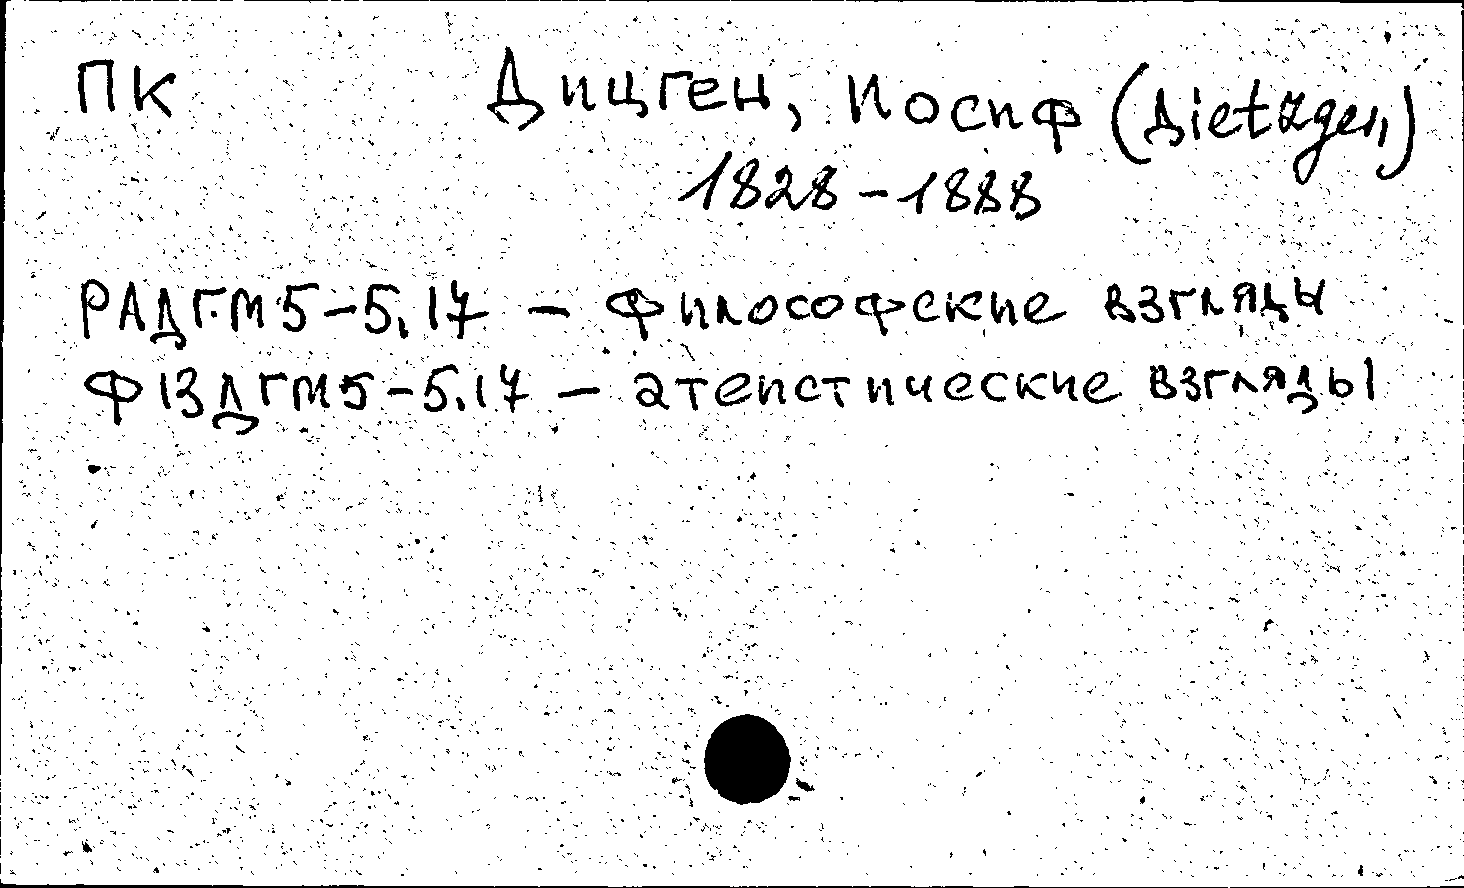 ПК Дицген, Иосиф (Dietzgen)
1828-1888
РАДГ.М5-5.17 - философские взгляды
Ф13ДГМ5-5.17 - атеистические взгляды